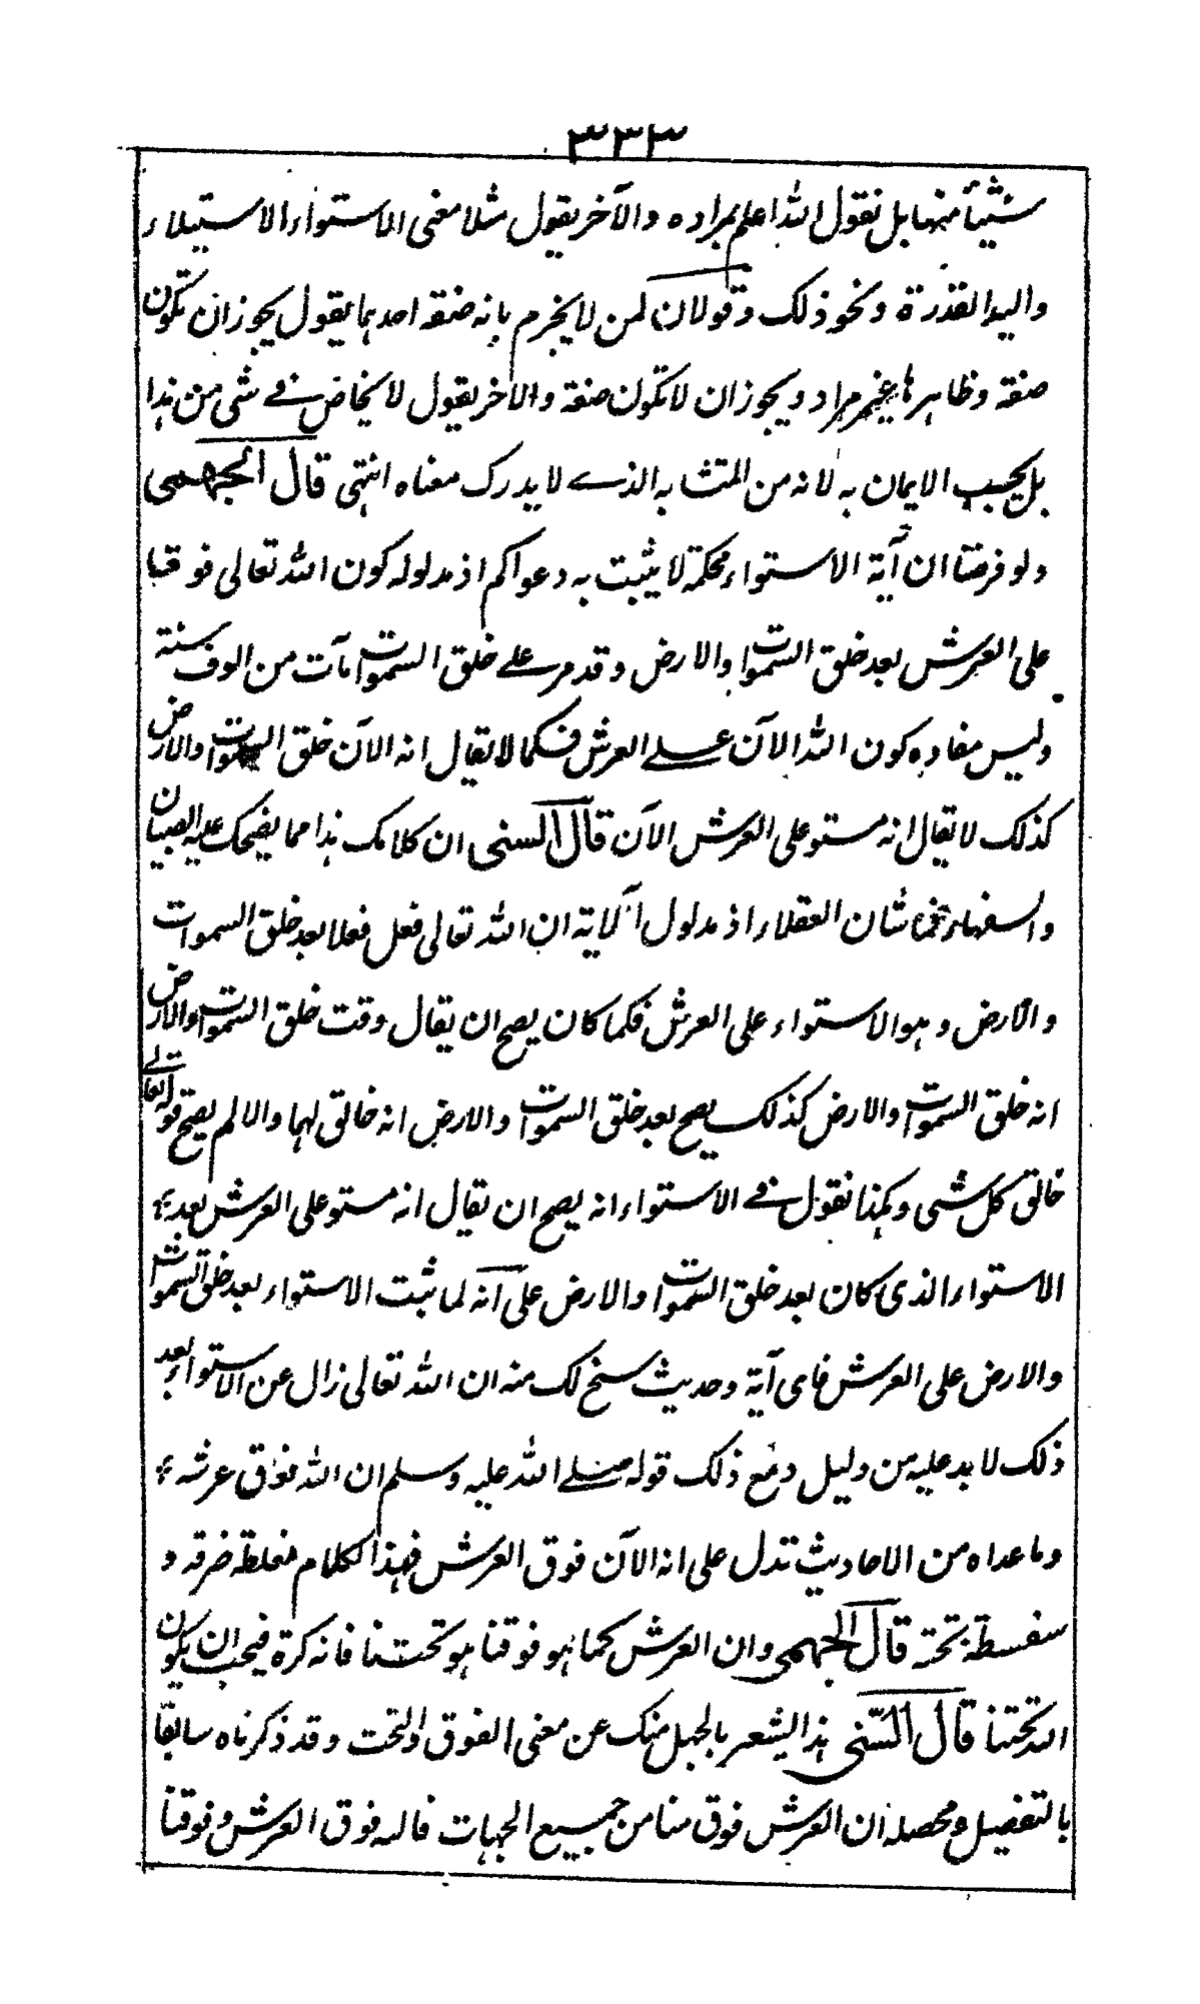 ٣٣٣
شيئا منها بل نقول الله اعلم بمراده والآخر يقول مثلا معنى الاستواء الاستيلاء
واليد القدرة ونحو ذلك وقولان لمن لا يجزم بانه صفة احدهما يقول يجوز ان تكون
صفة وظاهرها غير مراد ويجوز ان لا تكون صفة والآخر يقول لا يخاض في شي من هذا
بل يجب الايمان به لانه من المتشابه الذي لا يدرك معناه انتهى قال الجهمي
ولو فرضنا ان آية الاستواء محكمة لا يثبت به دعواكم اذ مدلوله كون الله تعالى فوقنا
على العرش بعد خلق السموات والارض وقد مر على خلق السموات مآت من الوف سنة
وليس مفاده كون الله الآن على العرش فكما لا يقال انه الآن خلق السموات والارض
كذلك لا يقال انه مستو على العرش الآن قال السني ان كلامك هذا مما يضحك عليه الصبيان
والسفهاء فما شان العقلاء اذ مدلول الآية ان الله تعالى فعل فعلا بعد خلق السموات
والارض وهو الاستواء على العرش فكما كان يصح ان يقال وقت خلق السموات والارض
انه خلق السموات والارض كذلك يصح بعد خلق السموات والارض انه خالق لهما والا لم يصح قوله تعالى
خالق كل شي وكهذا نقول في الاستواء انه يصح ان يقال انه مستو على العرش بعد
الاستواء الذي كان بعد خلق السموات والارض على انه لما ثبت الاستواء بعد خلق السموات
والارض على العرش فاى آية وحديث سنح لك منه ان الله تعالى زال عن الاستواء بعد
ذلك لا بد عليه من دليل ومع ذلك قوله صلى الله عليه وسلم ان الله فوق عرشه
وما عداه من الاحاديث تدل على انه الآن فوق العرش فهذا الكلام مغلطة صرفه و
سفسطة بحتة قال الجهمي وان العرش كما هو فوقنا هو تحتنا فانه كرة فيجب ان يكون
الله تحتنا قال السني هذا يشعر بالجهل منك عن معنى الفوق والتحت وقد ذكرناه سابقا
بالتفصيل ومحصله ان العرش فوق منا من جميع الجهات فالله فوق العرش وفوقنا